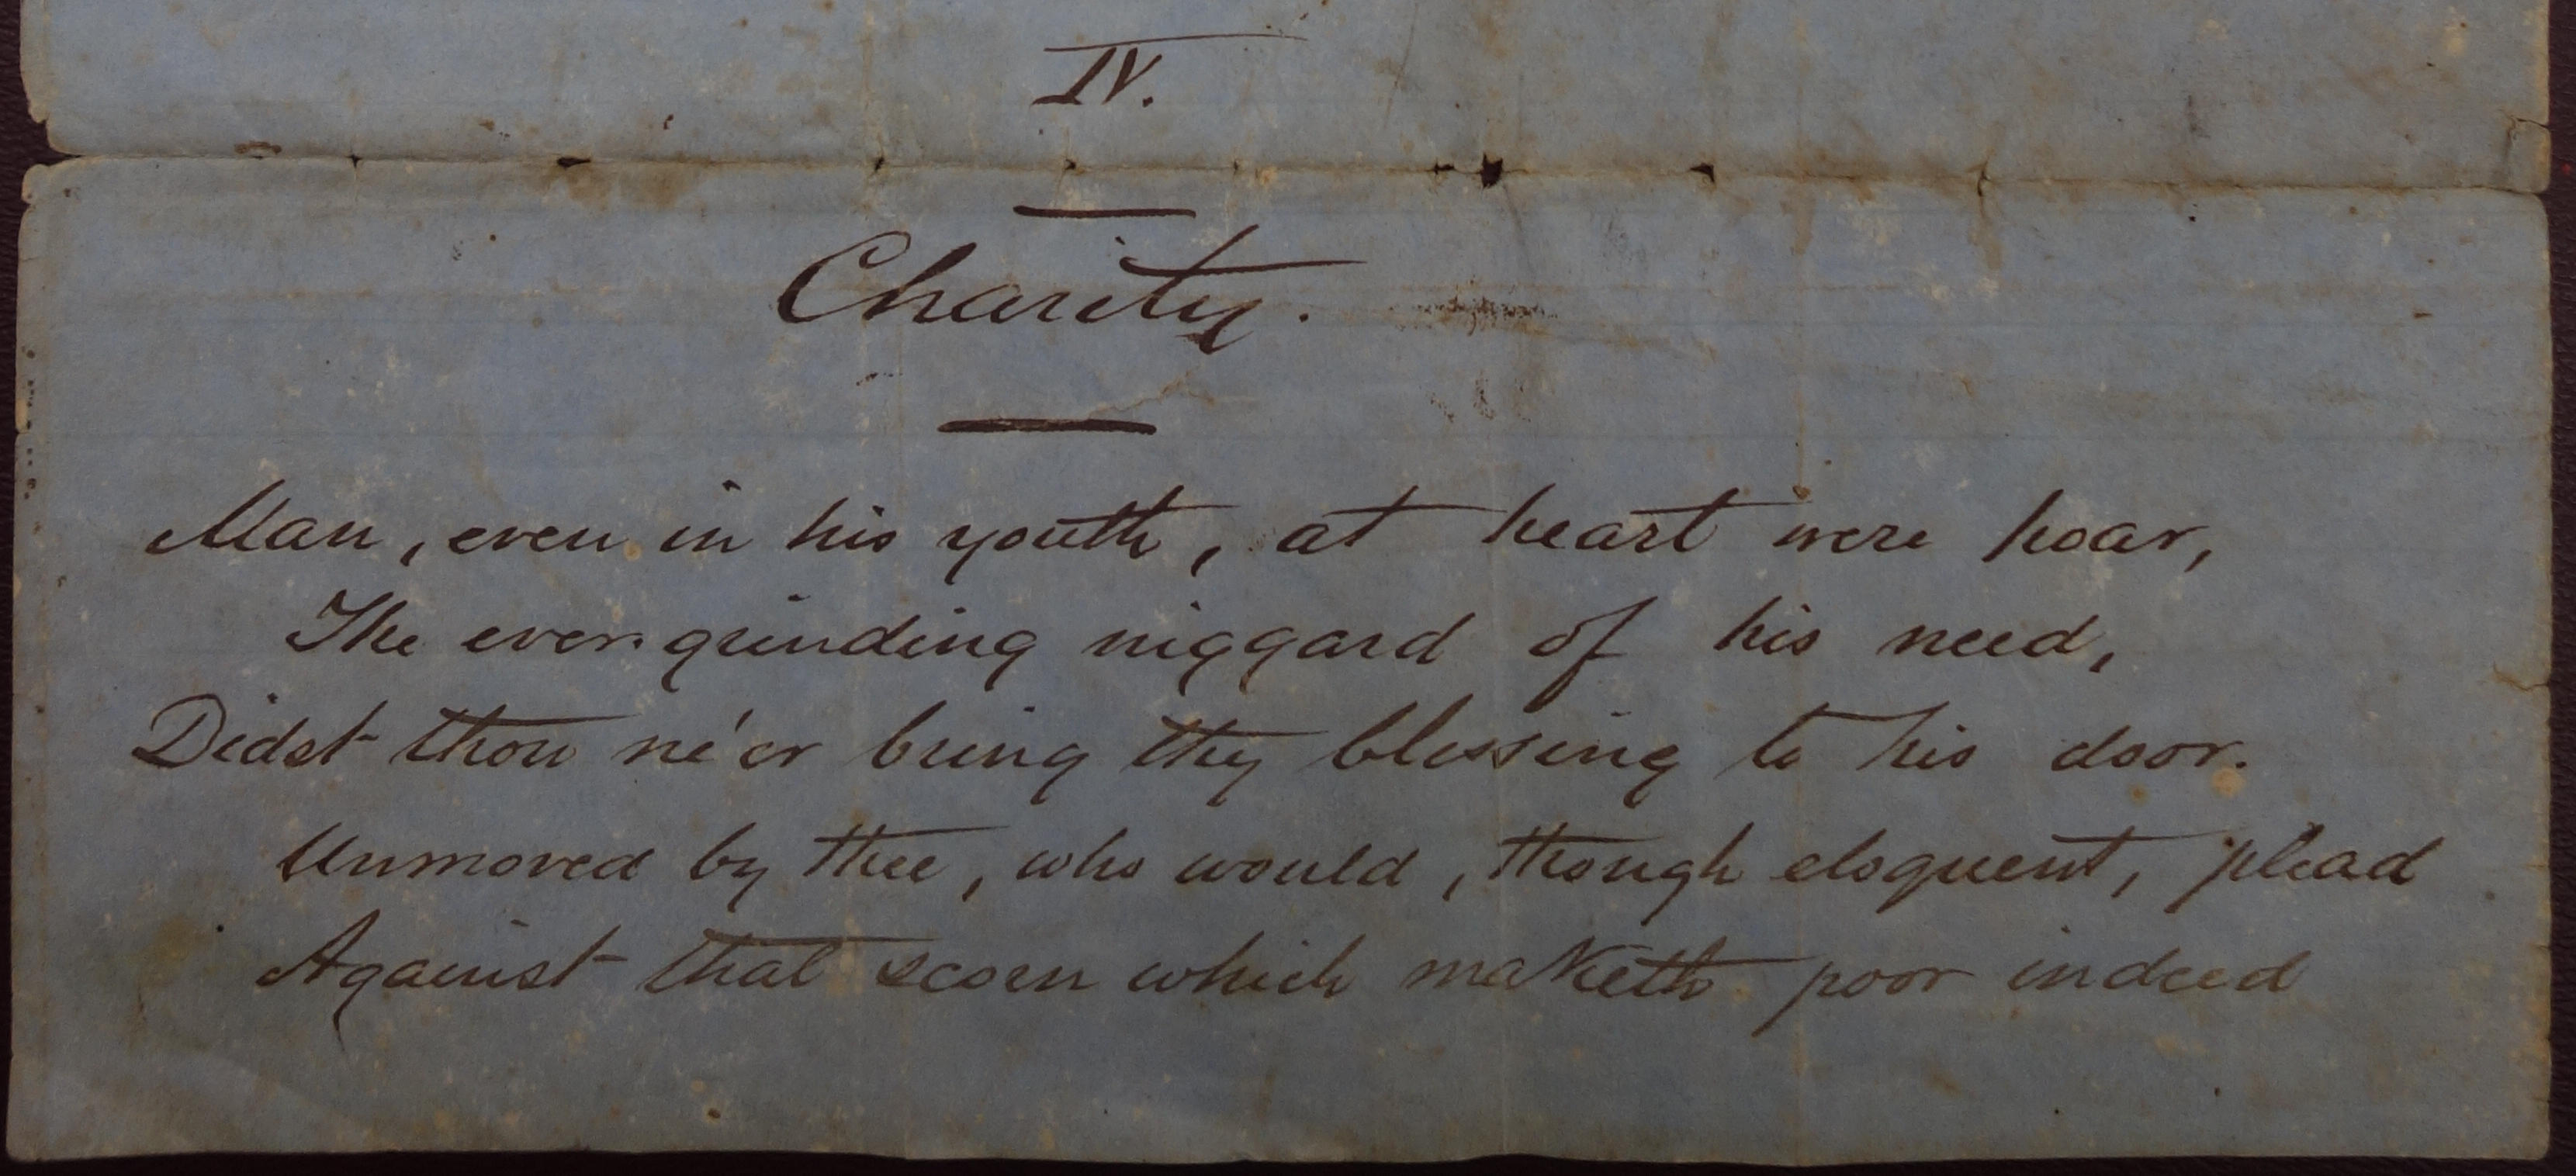 IV.
Charity.
Man, even in his youth, at heart were hoar,
The ever-grinding niggard of his need,
Didst thou ne'er bring thy blessing to his door.
Unmoved by thee, who would, though eloquent, plead
Against that scorn which maketh poor indeed